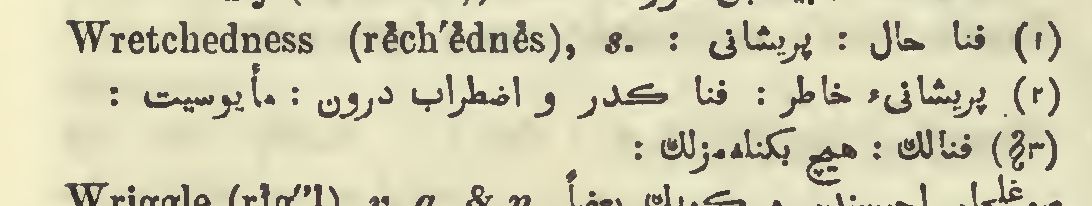 Wretchedness (rĕch'ĕdnĕs), s. : (١) فنا حال : پریشانی
(٢) پریشانیء خاطر : فنا كدر و اضطراب درون : مأیوسیت :
(§٣) فنالك : هیچ بكنلمه‌مزلك :
Wriggle (rĭg''l), v. a. & n.